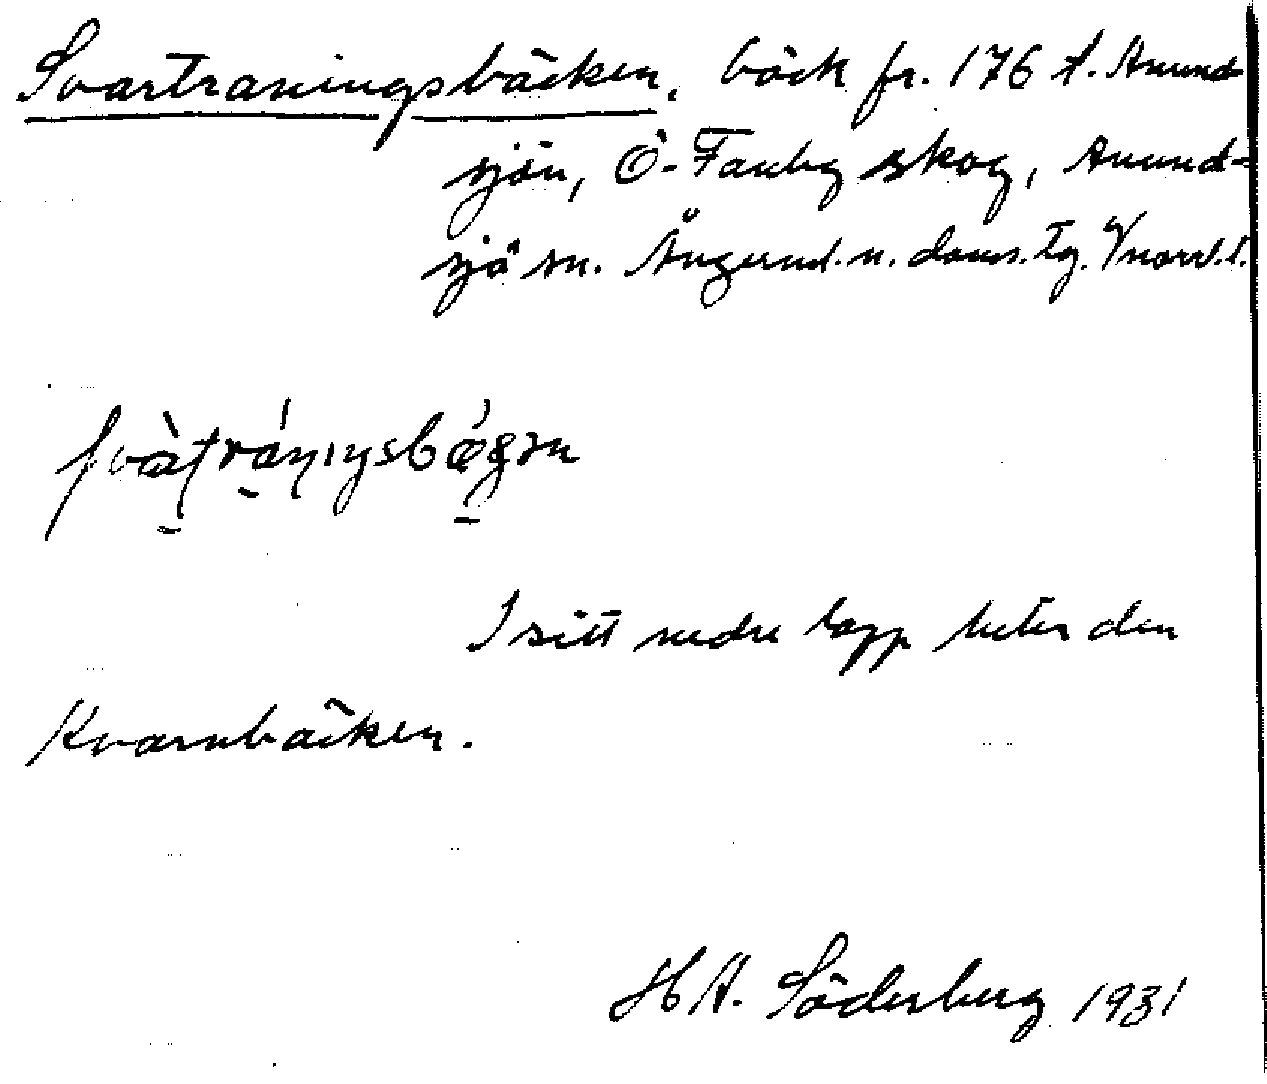 Svartraningsbäcken, bäck fr. 176 t. Anund-
sjön, Ö-Fanbg skog, Anund-
sjö sn. Ångerml. n. doms. tg. Vnorrl. l.
I sitt nedre lopp heter den
Kvarnbäcken.
H Å. Söderberg 1931